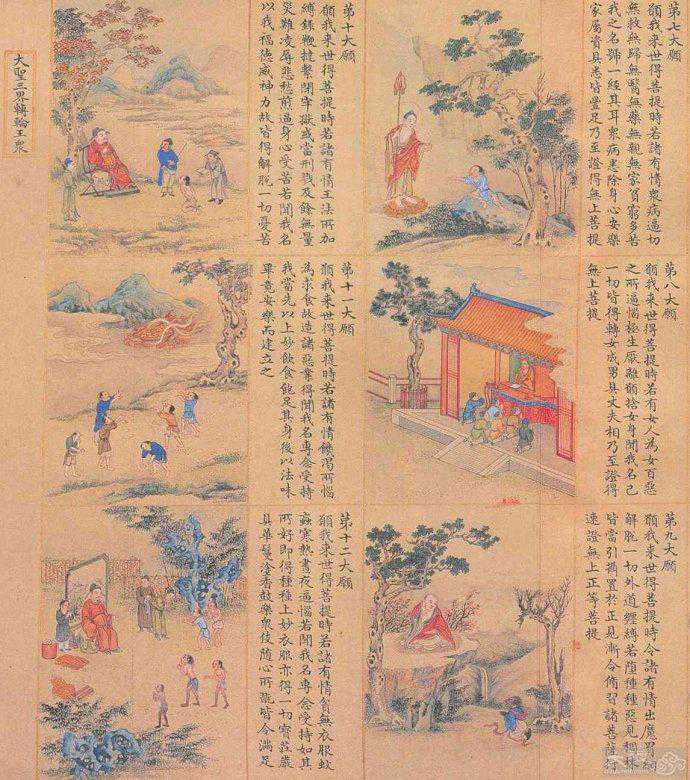 第七大願
願我来世得菩提時若諸有情衆病逼切
無救無歸無醫無藥無親無家貧窮多苦
我之名號一經其耳衆病悉除身心安樂
家屬資具悉皆豐足乃至證得無上菩提
第八大願
願我来世得菩提時若有女人為女百惡
之所逼惱極生厭離願捨女身聞我名已
一切皆得轉女成男具丈夫相乃至證得
無上菩提
第九大願
願我来世得菩提時令諸有情出魔罥網
解脫一切外道纏縛若墮種種惡見稠林
皆當引攝置於正見漸令修習諸菩薩行
速證無上正等菩提
第十大願
願我来世得菩提時若諸有情王法所加
縛錄鞭撻繫閉牢獄或當刑戮及餘無量
災難凌辱悲愁煎逼身心受苦若聞我名
以我福德威神力故皆得解脫一切憂苦
第十一大願
願我来世得菩提時若諸有情饑渴所惱
為求食故造諸惡業得聞我名專念受持
我當先以上妙飲食飽足其身後以法味
畢竟安樂而建立之
第十二大願
願我来世得菩提時若諸有情貧無衣服蚊
蟲寒熱晝夜逼惱若聞我名專念受持如其
所好即得種種上妙衣服亦得一切寶莊嚴
具華鬘塗香鼓樂衆伎隨心所翫皆令滿足
大聖三界轉輪王衆